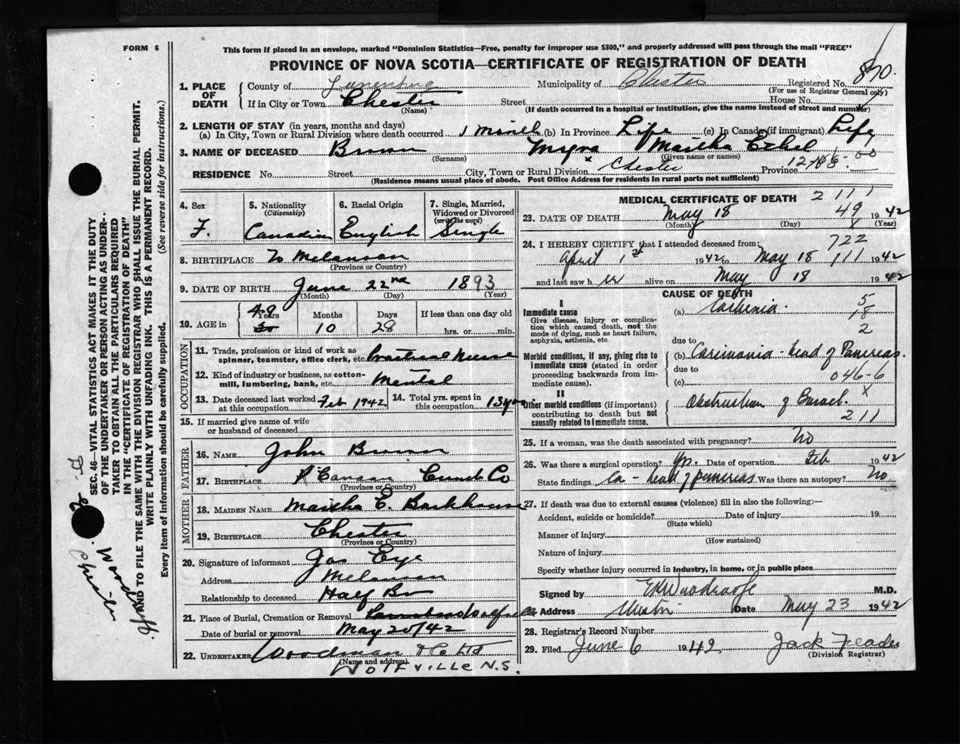 FORM 6
This form if placed in an envelope, marked "Dominion Statistics—Free, penalty for improper use $300," and properly addressed will pass through the mail "FREE"
PROVINCE OF NOVA SCOTIA—CERTIFICATE OF REGISTRATION OF DEATH
1. PLACE OF DEATH
County of Lunenburg Municipality of Chester Registered No. 870
(For use of Registrar General only)
If in City or Town Chester Street House No.
(Name) (If death occurred in a hospital or institution, give the name instead of street and number)
2. LENGTH OF STAY (in years, months and days)
(a) In City, Town or Rural Division where death occurred 1 month (b) In Province Life (c) In Canada (if immigrant) Life
3. NAME OF DECEASED Brown Myra Martha Ethel
(Surname) (Given name or names)
RESIDENCE No. Street City, Town or Rural Division Chester Province
(Residence means usual place of abode. Post Office Address for residents in rural parts not sufficient)
4. Sex F.
5. Nationality (Citizenship) Canadian
6. Racial Origin English
7. Single, Married, Widowed or Divorced (write the word) Single
8. BIRTHPLACE Melanson
(Province or Country)
9. DATE OF BIRTH June 22nd 1893
(Month) (Day) (Year)
10. AGE in 48 Years 10 Months 28 Days If less than one day old hrs. or min.
OCCUPATION
11. Trade, profession or kind of work as spinner, teamster, office clerk, etc. Practical Nurse
12. Kind of industry or business, as cotton-mill, lumbering, bank, etc. Mental
13. Date deceased last worked at this occupation Feb 1942 14. Total yrs. spent in this occupation 13 yrs
15. If married give name of wife or husband of deceased
FATHER
16. NAME John Brown
17. BIRTHPLACE Cumb Co
(Province or Country)
MOTHER
18. MAIDEN NAME Martha E. Barkhouse
19. BIRTHPLACE Chester
(Province or Country)
20. Signature of informant Jas Eye
Address Melanson
Relationship to deceased Half Bro
21. Place of Burial, Cremation or Removal
Date of burial or removal May 20/42
22. UNDERTAKER Woodman & Co Ltd
(Name and address)
WOLFVILLE N.S.
MEDICAL CERTIFICATE OF DEATH 2 111
23. DATE OF DEATH May 18 49 1942
(Month) (Day) (Year)
24. I HEREBY CERTIFY that I attended deceased from: 722
April 1st 1942 to May 18 111 1942
and last saw h er alive on May 18 1942
CAUSE OF DEATH
I
Immediate cause
Give disease, injury or complication which caused death, not the mode of dying, such as heart failure, asphyxia, asthenia, etc.
(a)
5
18
2
due to
Morbid conditions, if any, giving rise to immediate cause (stated in order proceeding backwards from immediate cause).
(b) Carcinoma - head of Pancreas.
due to
(c) 046-6
II
Other morbid conditions (if important) contributing to death but not causally related to immediate cause.
Obstruction of Bowel X
211
25. If a woman, was the death associated with pregnancy? No
26. Was there a surgical operation? Yes. Date of operation Feb 1942
State findings Ca - head of pancreas. Was there an autopsy? No
27. If death was due to external causes (violence) fill in also the following:—
Accident, suicide or homicide? Date of injury 19
(State which)
Manner of injury
(How sustained)
Nature of injury
Specify whether injury occurred in industry, in home, or in public place
Signed by M.D.
Address Date May 23 1942
28. Registrar's Record Number
29. Filed June 6 1942 Jack Feader
(Division Registrar)
SEC. 46—VITAL STATISTICS ACT MAKES IT THE DUTY
OF THE UNDERTAKER OR PERSON ACTING AS UNDER-
TAKER TO OBTAIN ALL THE PARTICULARS REQUIRED
IN THE "CERTIFICATE OF REGISTRATION OF DEATH"
AND TO FILE THE SAME WITH THE DIVISION REGISTRAR WHO SHALL ISSUE THE BURIAL PERMIT.
WRITE PLAINLY WITH UNFADING INK. THIS IS A PERMANENT RECORD.
Every item of information should be carefully supplied. (See reverse side for instructions.)